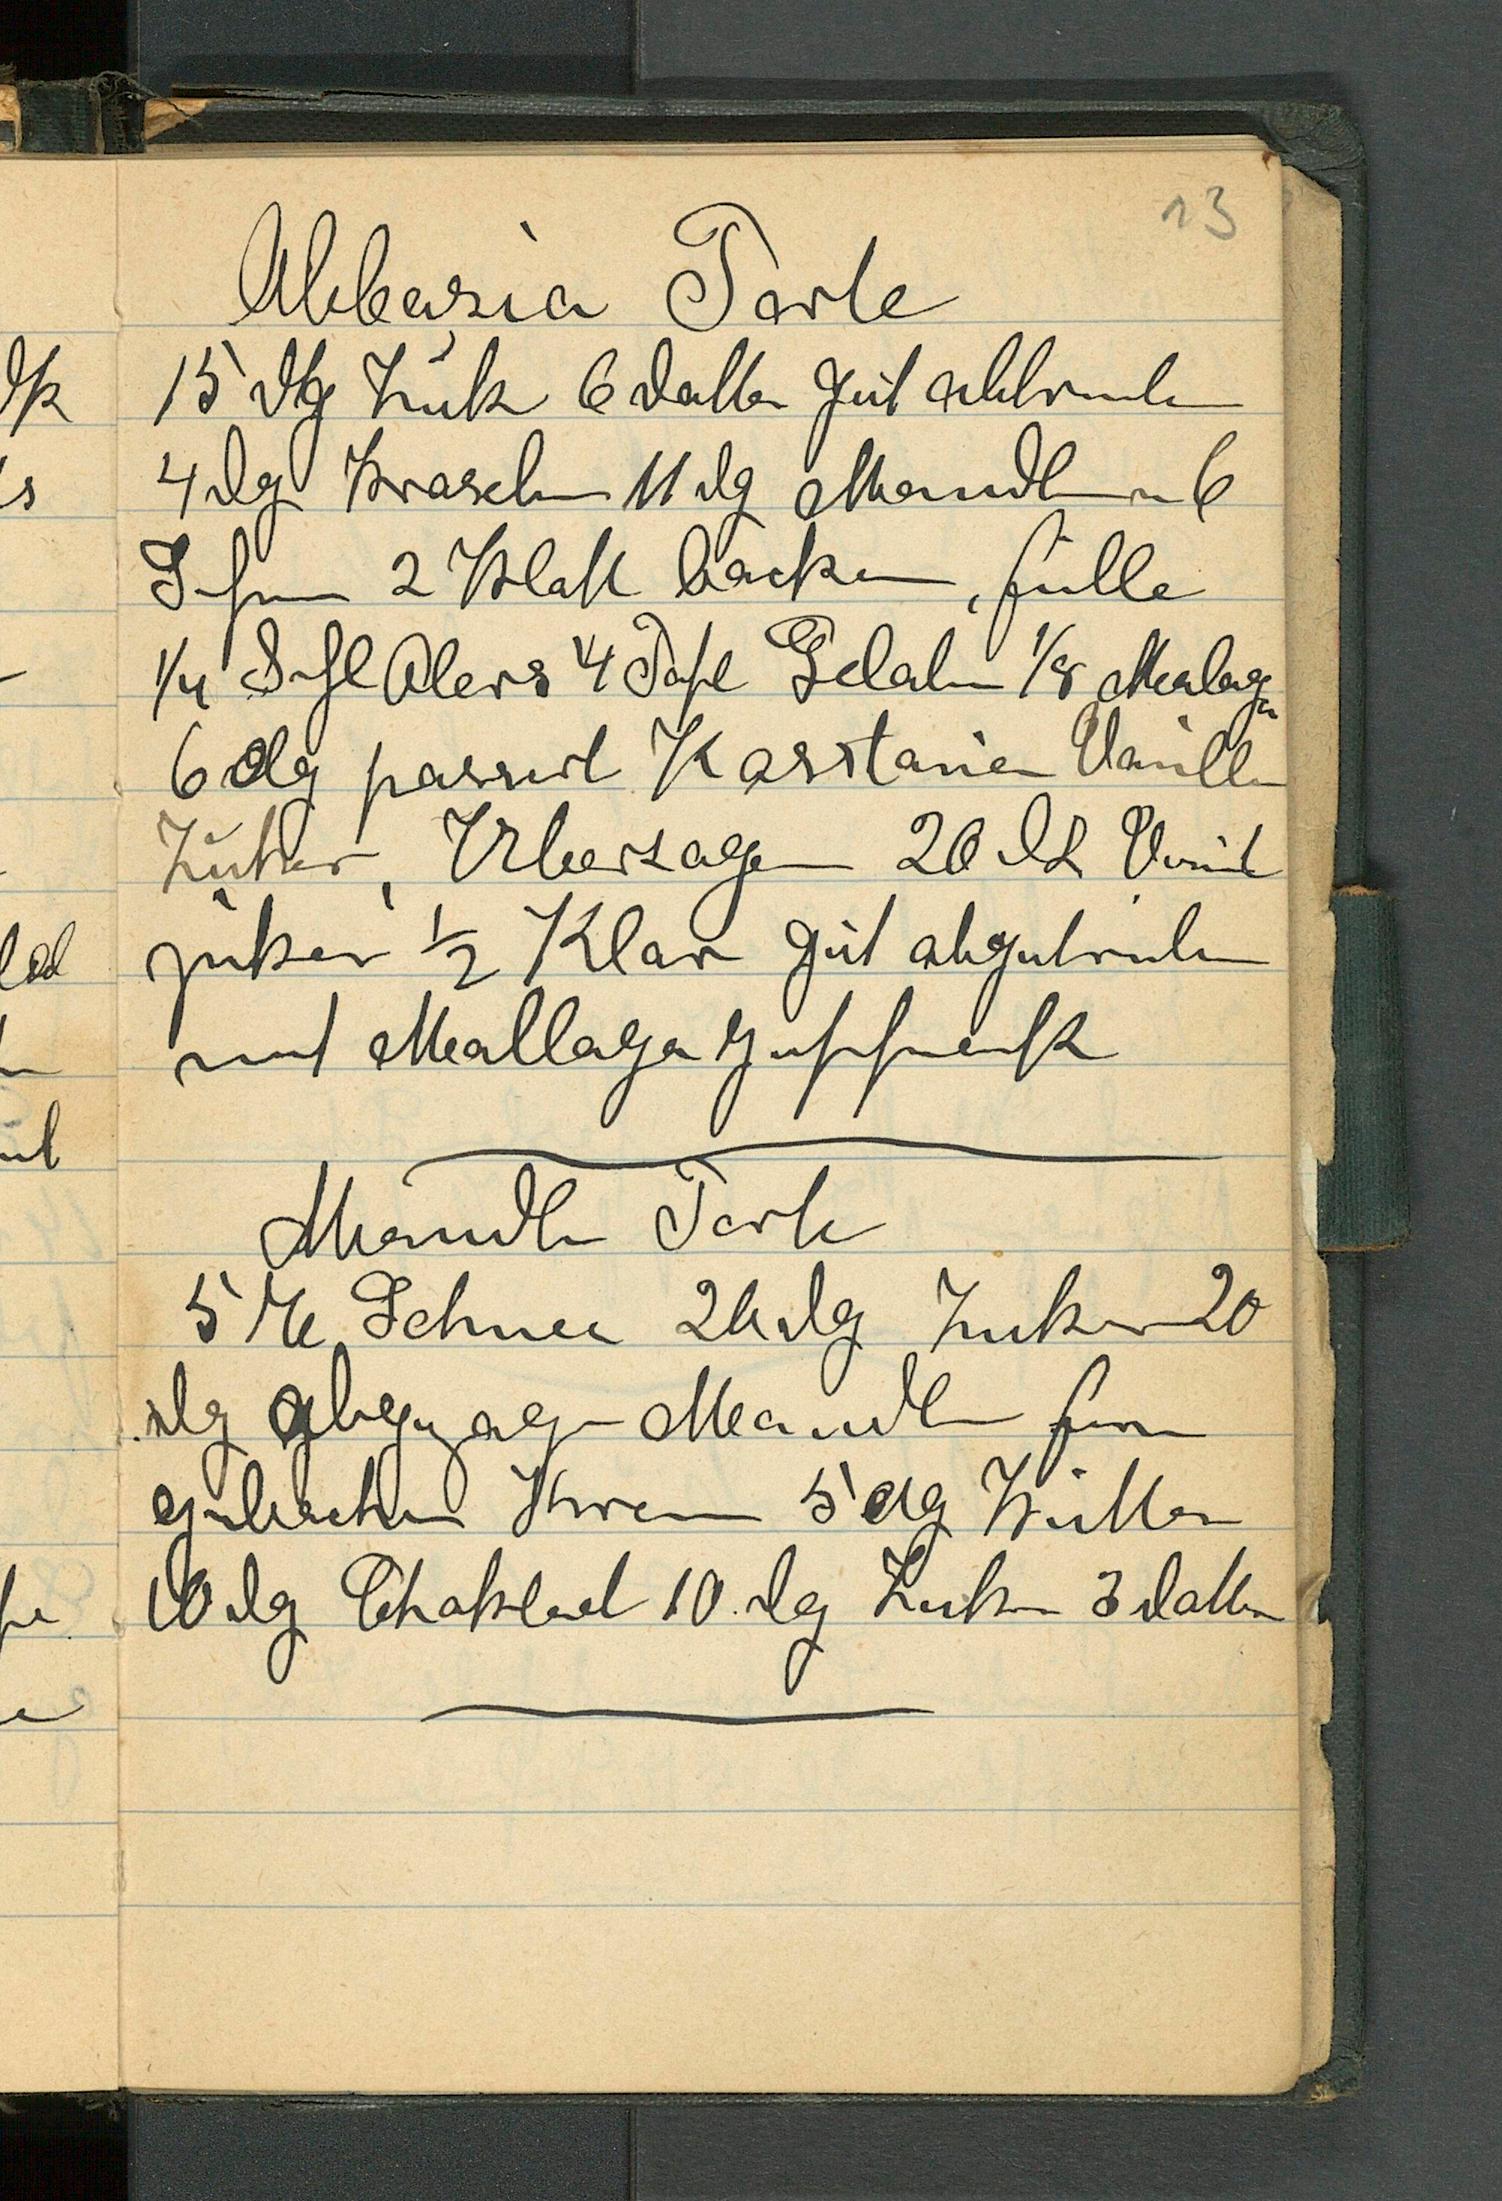 13
Abbazia Torte
15 dkg Zuk 6 Dotter gut abtreiben
4 dg Braseln 11 dg Mandln 6
Schnee 2 Blatt backen, fülle
1/4 Schl Obers 4 Tafel Gelatin 1/8 Malaga
6 dg passiert Kasstanien Vanille
Zuker, Uberzogen 20 dk Vanil
zuker 1/2 Klar gut abgetrieben
mit Mallaga
Mandln Torte
5 Kl Schnee 20 dg Zuker 20
dg abgezogen Mandln fein
gebachen Krem 5 dg Butter
10 dg Choklad 10 dg Zuker 3 Dotter